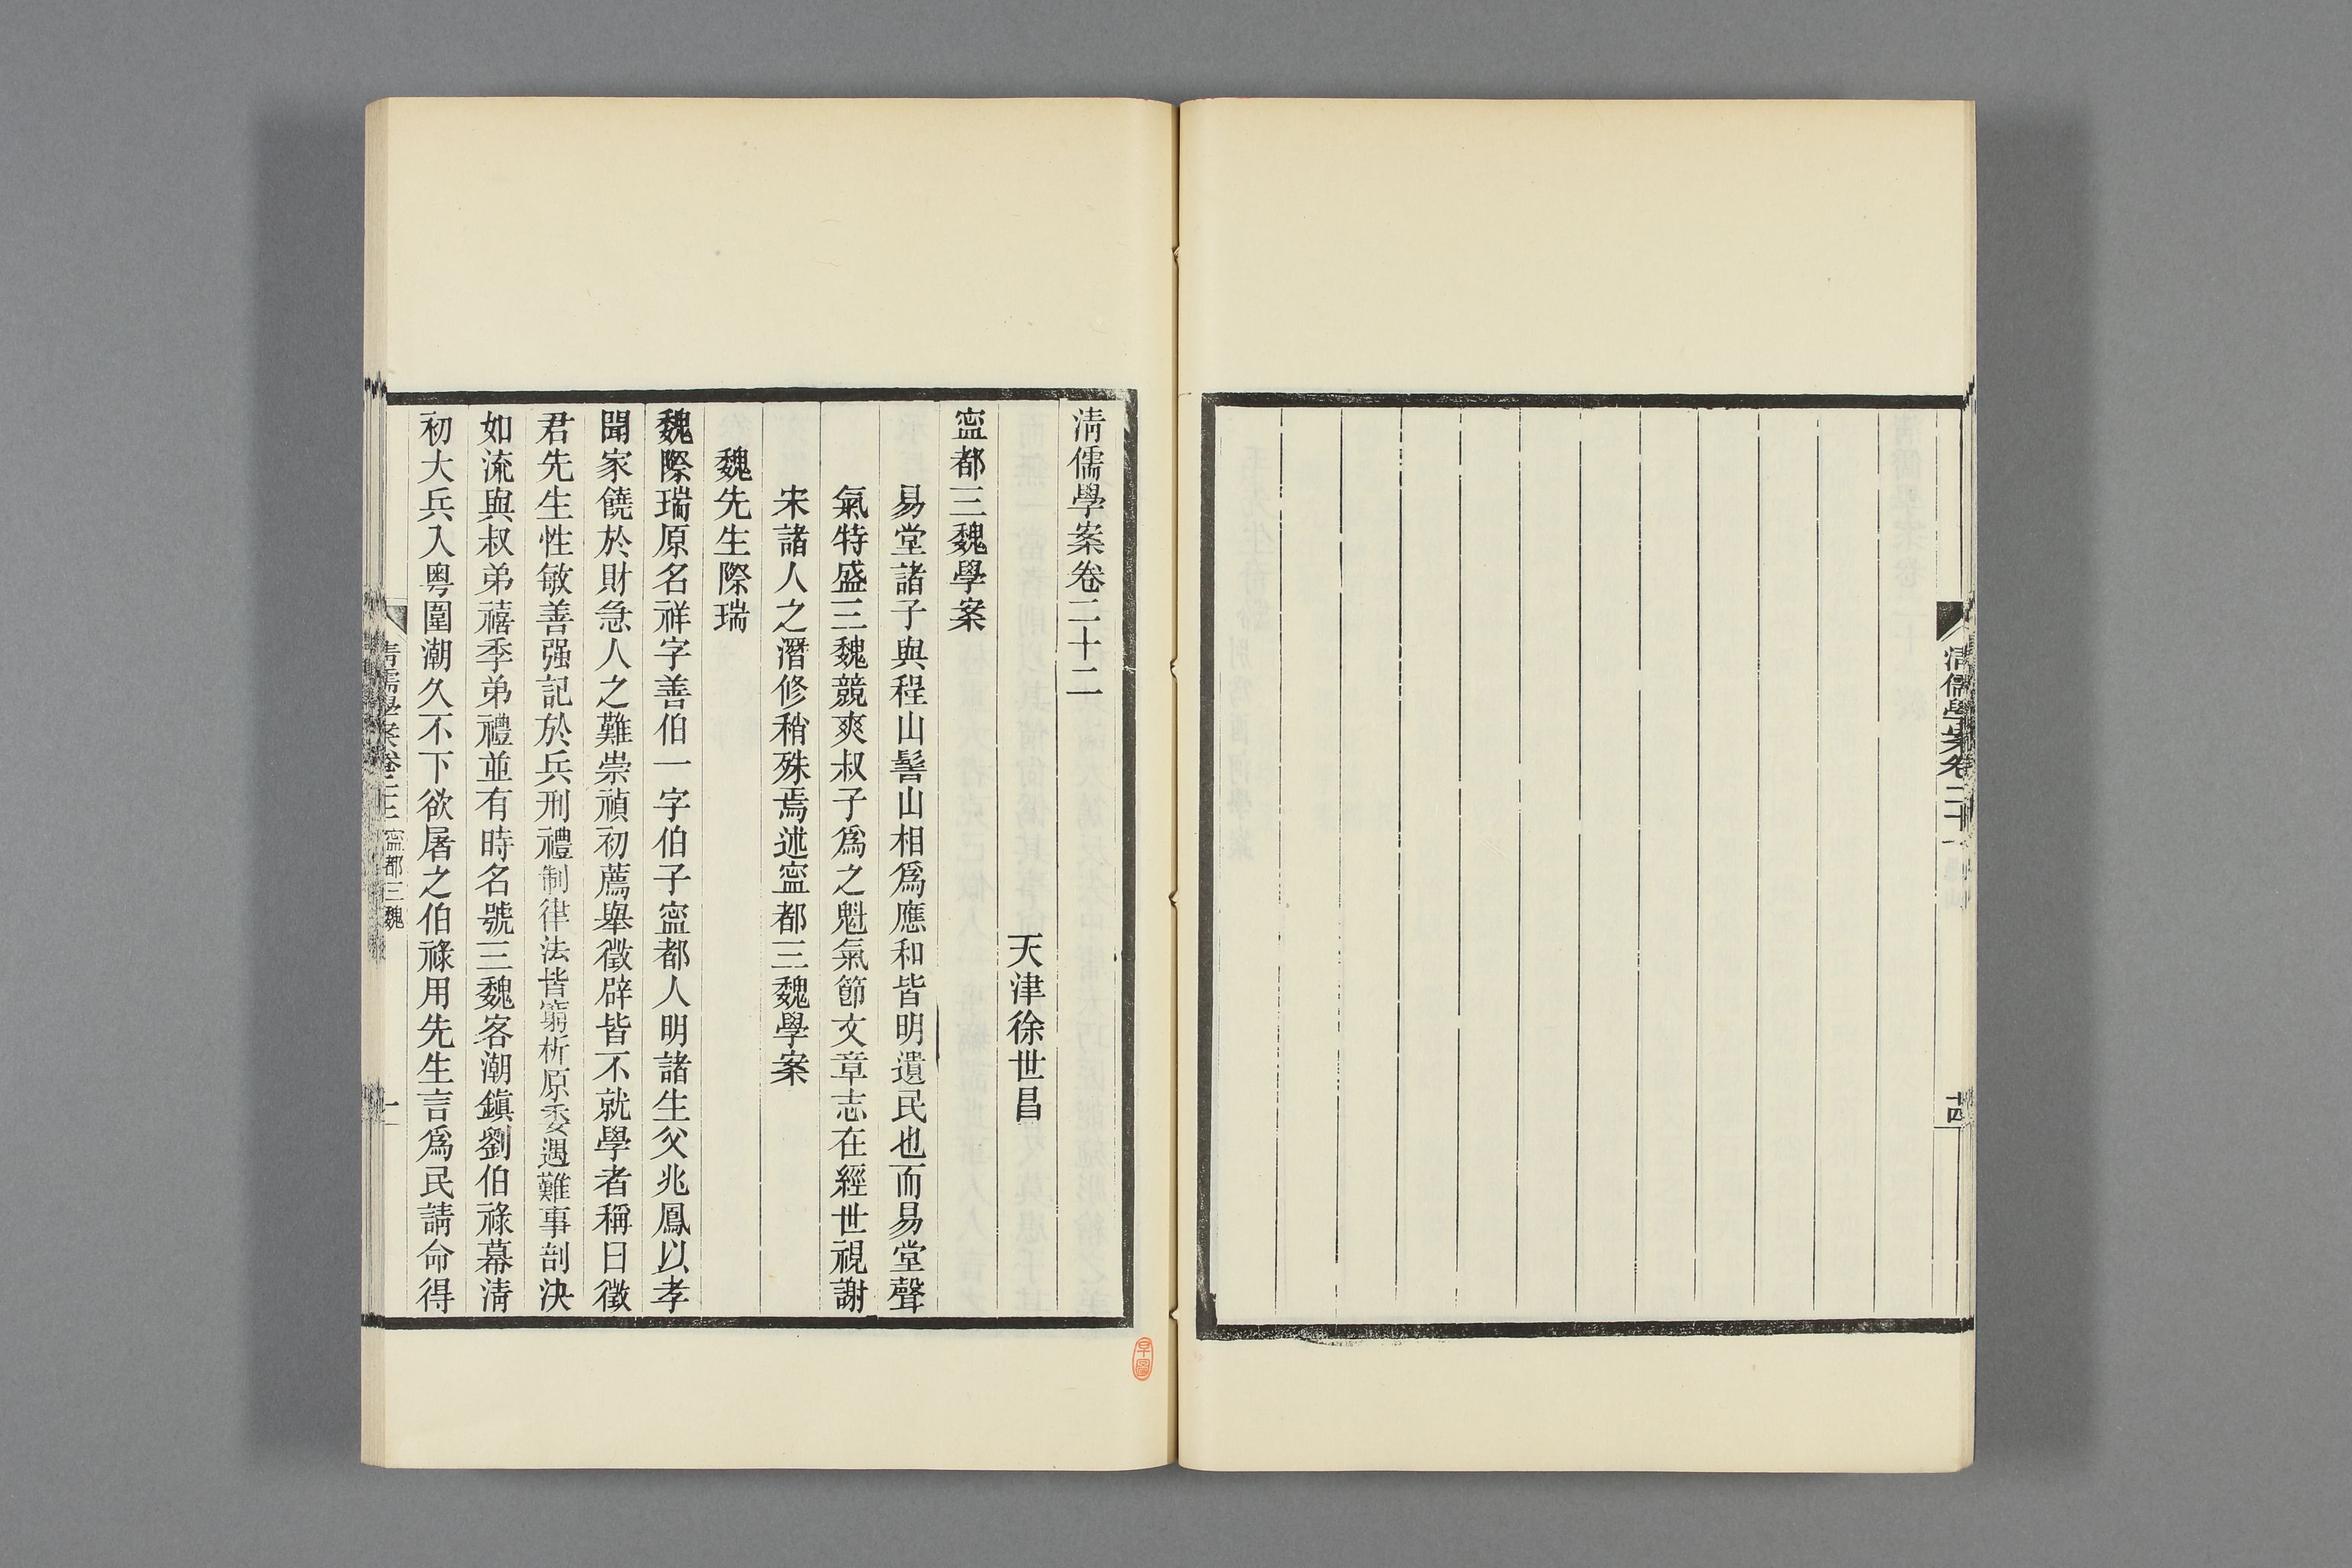 清儒學案卷二十一
十四
清儒學案卷二十二
天津徐世昌
寍都三魏學案
易堂諸子與程山髻山相爲應和皆明遺民也而易堂聲
氣特盛三魏競爽叔子爲之魁氣節文章志在經世視謝
宋諸人之潛修稍殊焉述寍都三魏學案
魏先生際瑞
魏際瑞原名祥字善伯一字伯子寍都人明諸生父兆鳳以孝
聞家饒於財急人之難崇禎初薦舉徵辟皆不就學者稱曰徵
君先生性敏善强記於兵刑禮制律法皆窮析原委遇難事剖決
如流與叔弟禧季弟禮並有時名號三魏客潮鎮劉伯祿幕清
初大兵入粵圍潮久不下欲屠之伯祿用先生言爲民請命得
清儒學案卷二十二 寍都三魏
一